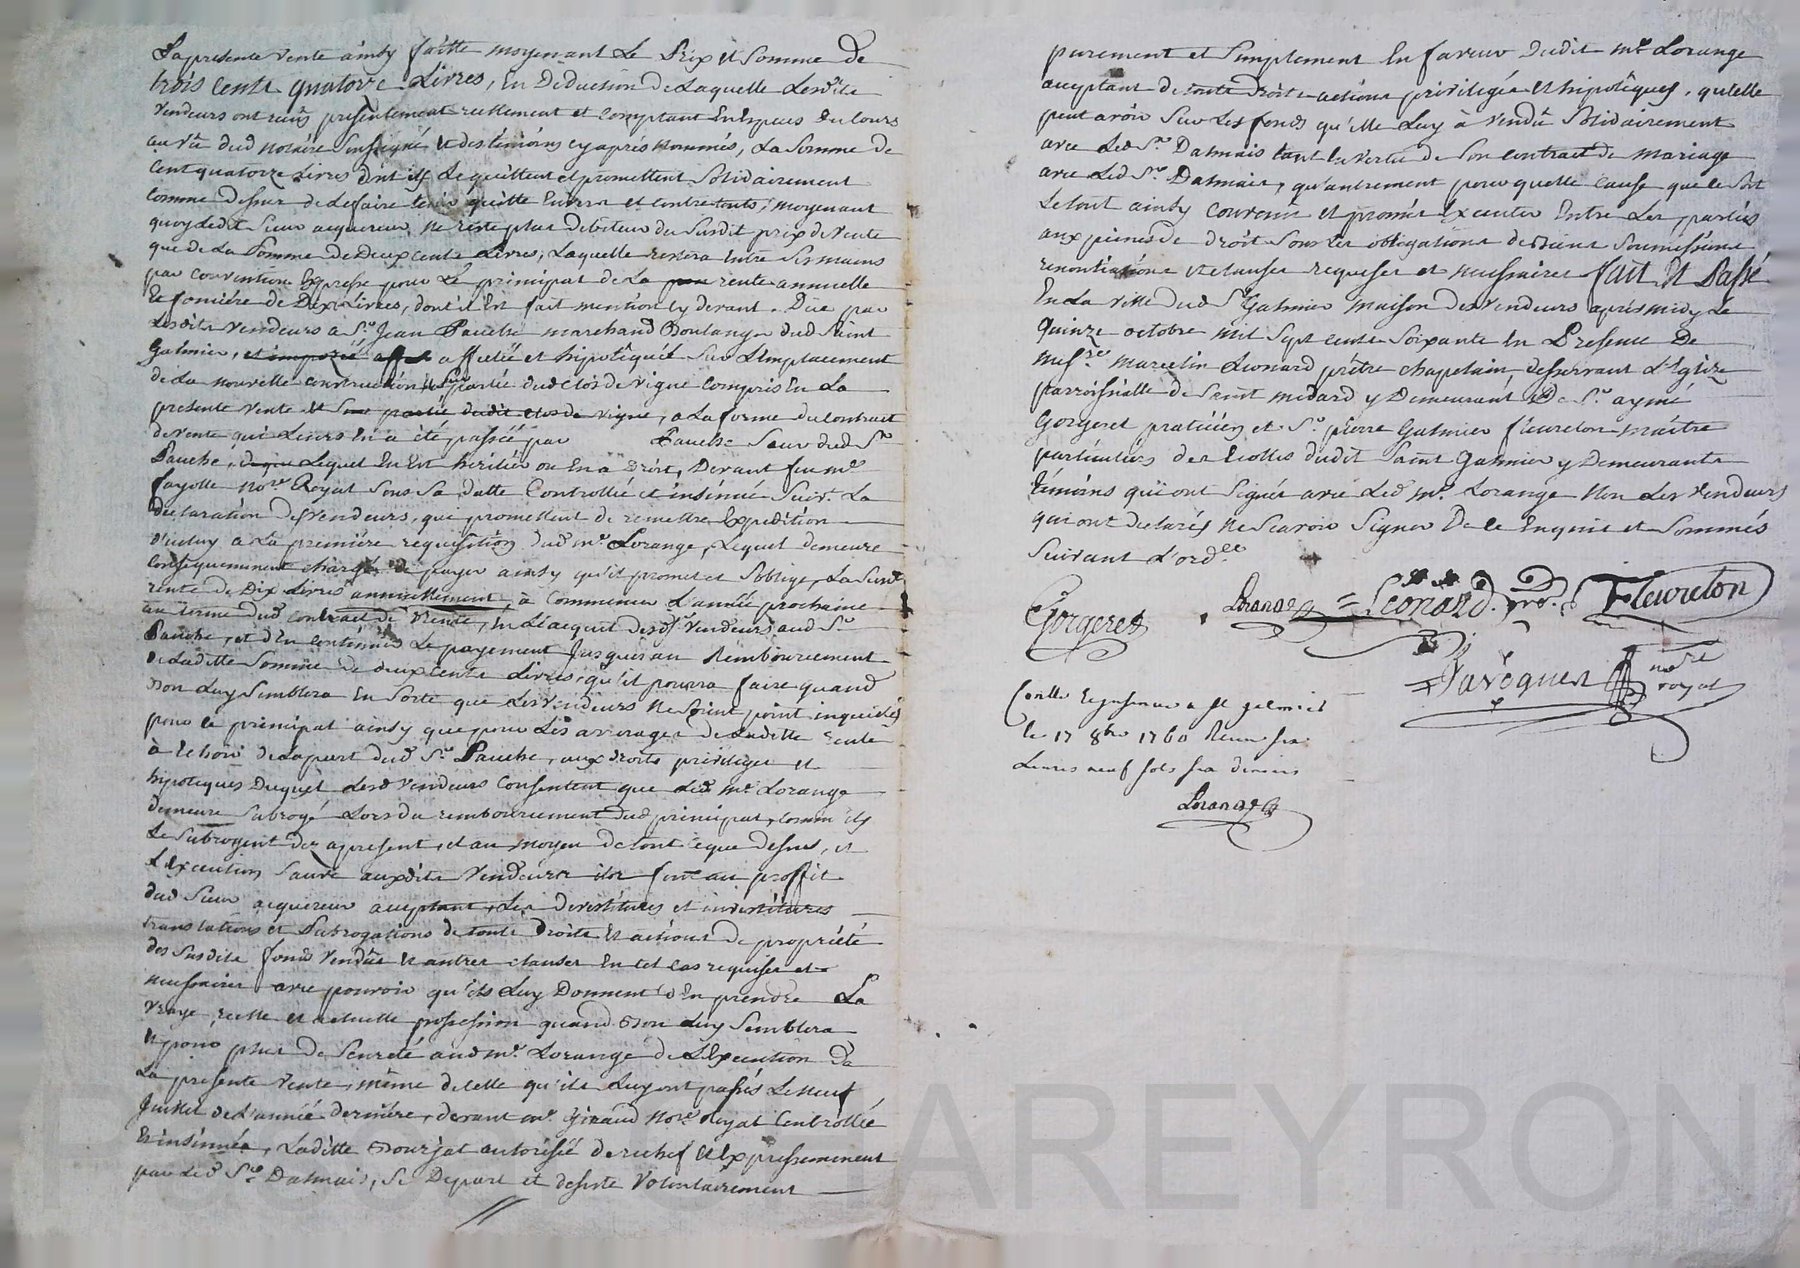 La presente vente ainsy faitte moyenant Le Prix et Somme de
trois Cents quatorze Livres, En Deduction de Laquelle Lesdits
Vendeurs ont reçus presentement reellement et comptant En Especes du Cours
au vû dud notaire Soussigné et des temoins cy aprés Nommés, La Somme de
Cent quatorze Livres dont ils Le quittent et promettent Solidairement
Comme dessus de Le faire tenir quitte Envers et contre touts, moyenant
quoy Ledit Sieur acquereur Ne reste plus debiteur du Susdit prix de Vente
que de La Somme de Deux cents Livres, Laquelle restera Entre Ses mains
par Convention Expresse pour Le principal de La rente annuelle
et fonciére de Dix Livres, dont il Est fait mention cy devant. Düe par
Lesdits Vendeurs a Sr. Jean Pauche marchand Boulanger dud Saint
Galmier, et imposée affectée et hipotéquée Sur L'Emplacement
de La nouvelle construction et partie dud Clos de Vigne Compris En La
presente vente et Sur partie dudit clos de vigne, a La forme du Contrat
de Vente qui Leurs En a été passée par Pauche Sœur dud Sr.
Pauche, Lequel En Est heritier ou En a Droit, Devant feu me.
fayolle Nore. Royal Sous Sa datte Controllé et insinué Suivt. La
declaration des Vendeurs, qui promettent de remettre Expedition
d'iceluy a La premiére requisition dud me. Lorange, Lequel demeure
Consequemment chargé de payer ainsy qu'il promet et S'oblige, La Susd
rente de Dix Livres annuellement, à Commencer L'année prochaine
au terme dud contract de Vente, En L'acquit desd Vendeurs aud Sr.
Pauche, et d'En continuer Le payement Jusques au Remboursement
de Laditte Somme de deux Cents Livres, qu'il pourra faire quand
Bon Luy Semblera En Sorte que Les Vendeurs Ne Soint point inquietés
pour le principal ainsy que pour Les arrerages de Laditte rente
à Echoir de La part dud Sr. Pauche, aux droits privileges et
hypoteques Duquel Lesd Vendeurs Consentent que Led me. Lorange
demeure Subrogé Lors du remboursement dud principal, comm'ils
Le Subrogent dez apresent, et au moyen de tout ce que dessus, et
L'execution Sauve auxdits Vendeurs ils font au proffit
dud Sieur acquereur acceptant, Les devestitures et investitures
translations et Subrogations de touts Droits Et actions de proprieté
des Susdits fonds Vendüs Et autres clauses En tel cas requises et
necessaires avec pouvoir qu'ils Luy Donnent d'En prendre La
vraye, réelle et actuelle possession quand Bon Luy Semblera
Et pour plus de Seureté aud me. Lorange de L'Execution De
La presente Vente, même de celle qu'ils Luy ont passés Le neuf
Juillet de L'année derniére, devant me. Giraud Nore. Royal Controllée
Et insinuée, Laditte Bourjat autorisée de rechef et Expressemment
par Led Sr. Dalmais, Se Depare et desiste Volontairement
purement et Simplement En faveur Dudit me. Lorange
acceptant de touts droits actions privilegés Et hipotêques, qu'elle
peut avoir Sur Les fonds qu'elle Luy à Vendû Solidairement
avec Led Sr. Dalmais tant En Vertu de Son contract de mariage
avec Led Sr. Dalmais, qu'autrement pour quelle Cause que ce Soit
Le tout ainsy Convenu et promis Executer Entre Les parties
aux peines de droit Sous Les obligations de Biens Soumissions
renontiations et clauses requises et necessaires fait Et Passé
En La Ville dud St. Galmier maison des Vendeurs aprés midy Le
Quinze octobre mil Sept cents Soixante En Presence De
messre. marcelin Leonard prêtre chapelain desservant L'Eglise
parroissialle de Saint medard y Demeurant Et De Sr. aymé
Gorgeret praticien et Sr. pierre Galmier fleureton maître
particuliers des Ecolles dudit Saint Galmier y Demeurants
témoins qui ont Signés avec Led me. Lorange Non Les Vendeurs
qui ont declarés Ne Scavoir Signer De ce Enquis et Sommés
Suivant L'ordce.
Gorgeret Lorange Leonard. pre. Fleureton
Javogues nore royal
Conllé et insinué a st galmier
le 17 8bre 1760 Receu six
Livres neuf sols six deniers
Lorange
PASCAL MAREYRON